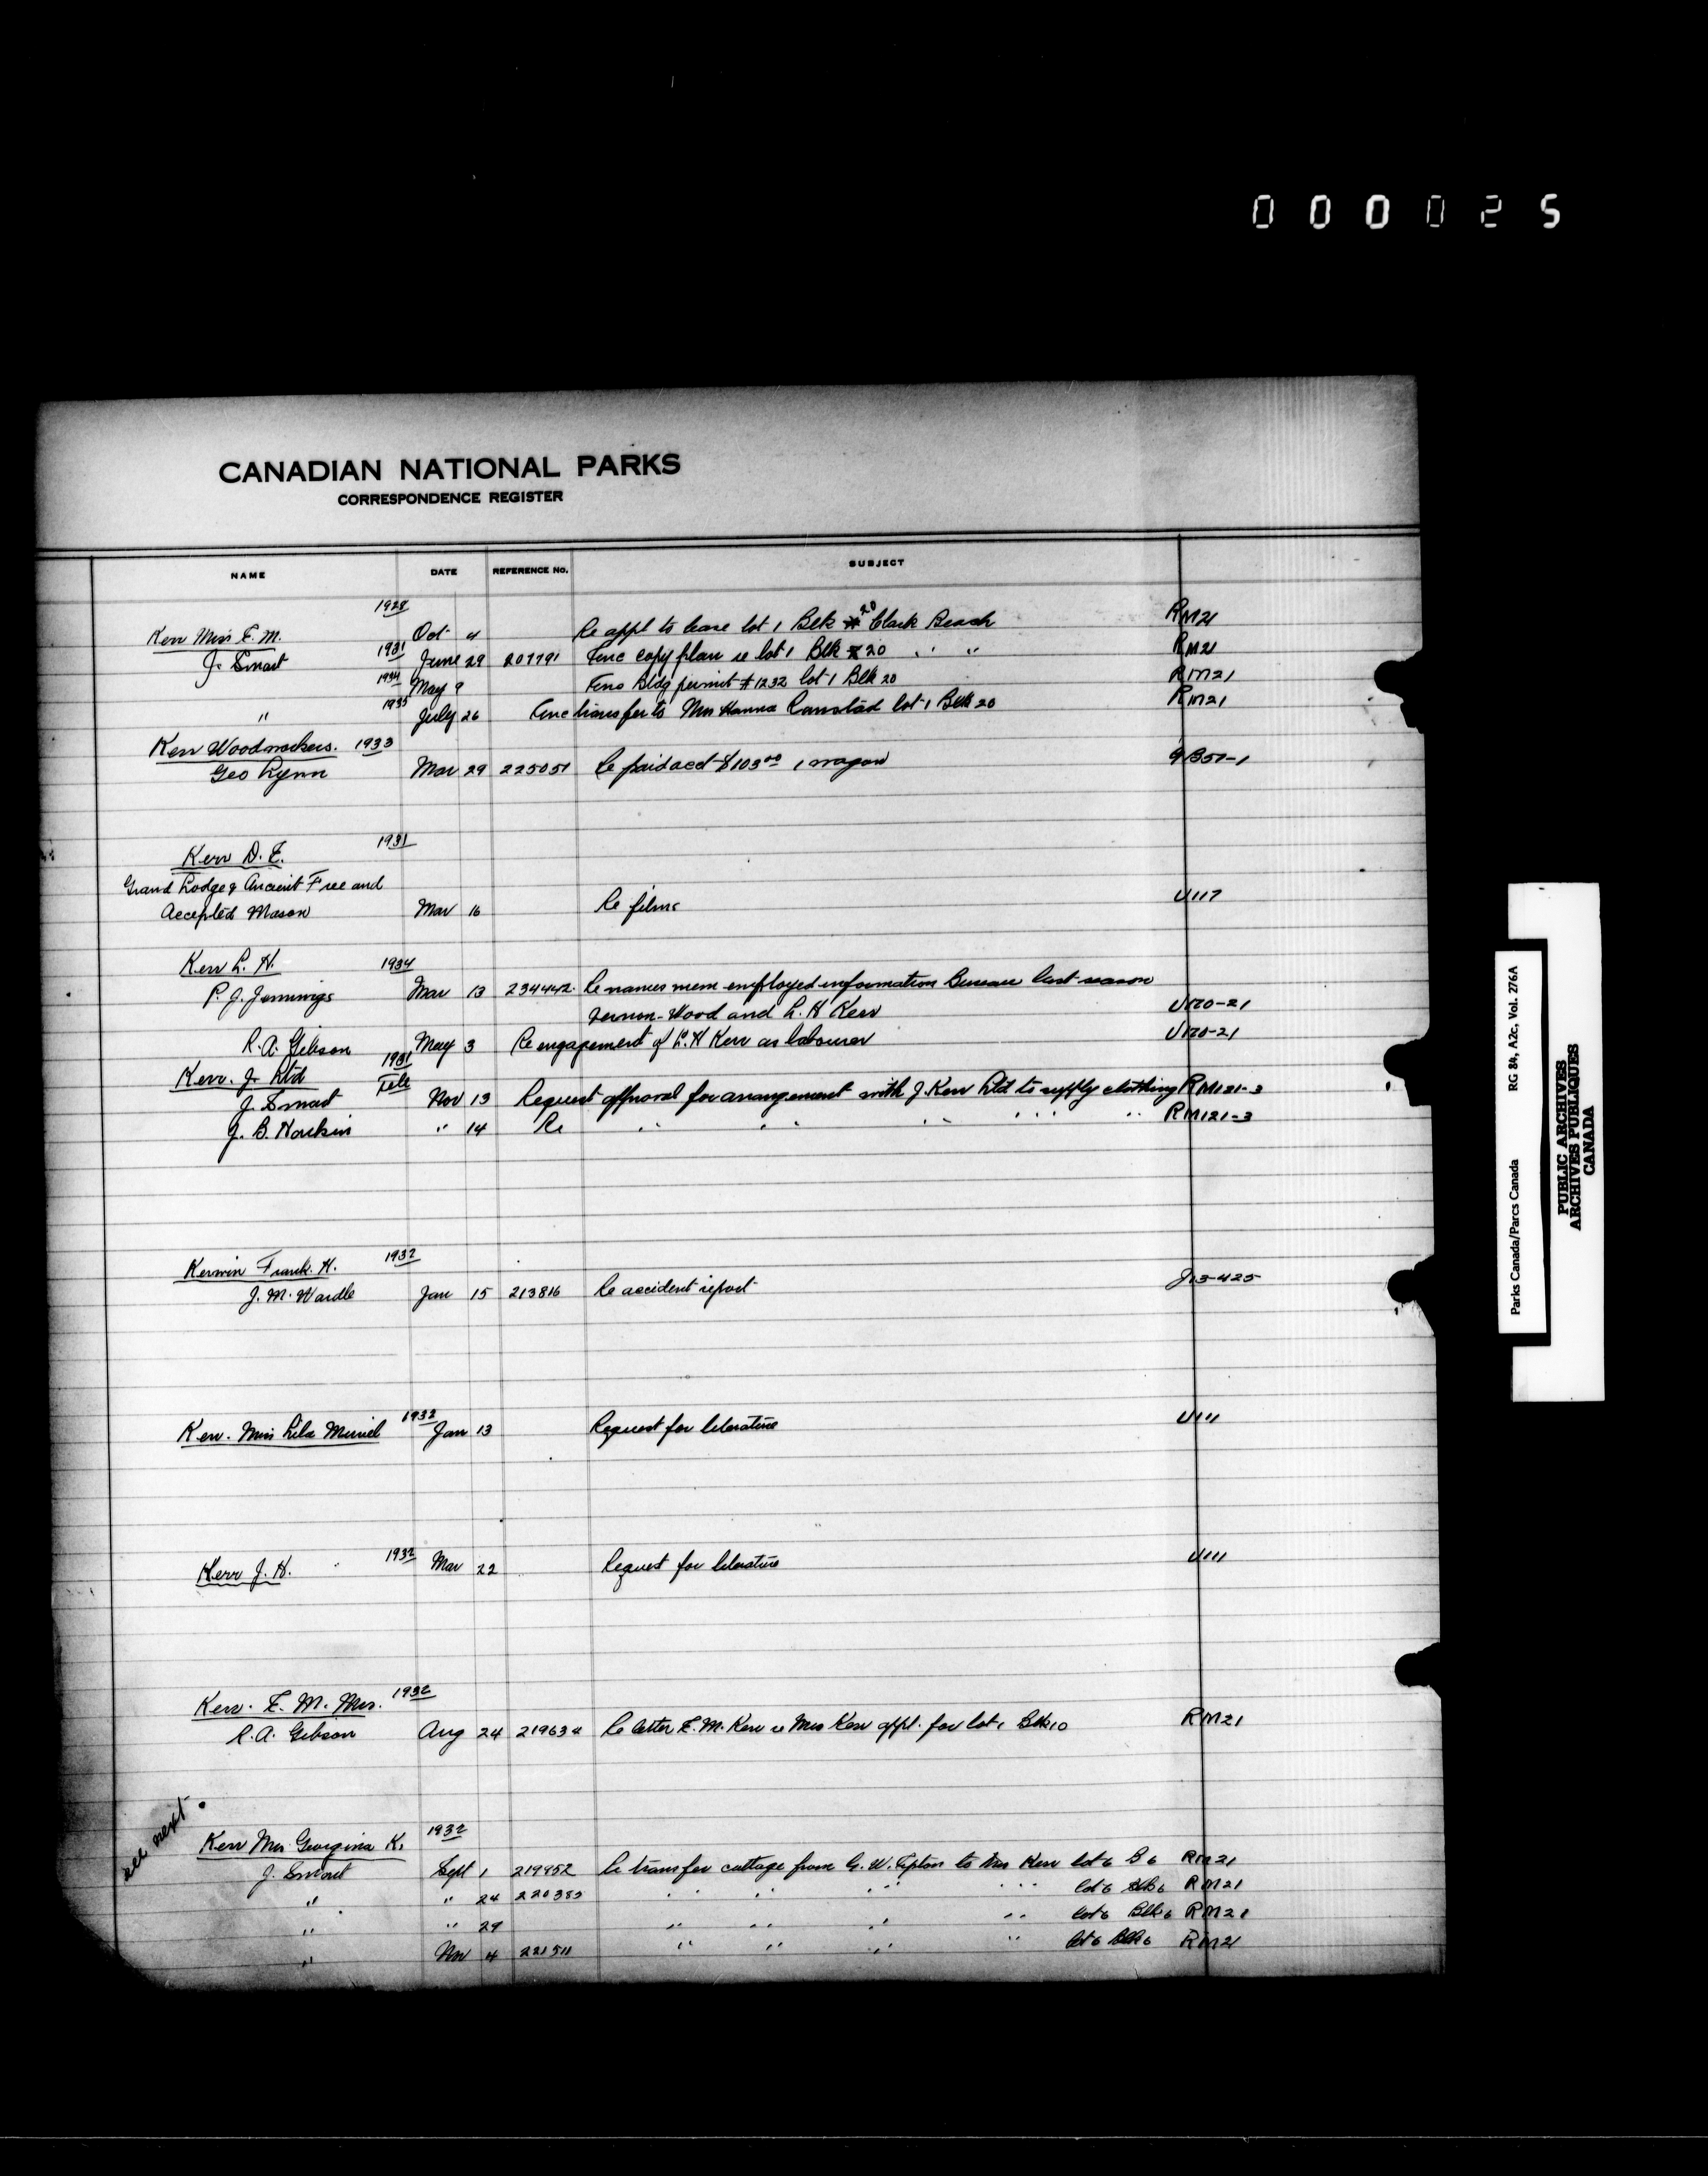 000025
CANADIAN NATIONAL PARKS
CORRESPONDENCE REGISTER
NAME DATE REFERENCE No. SUBJECT
1928
Kerr Miss E. M. Oct 4 Re appl to lease lot 1 Blk 20 Clark Beach RM21
J. Smart 1931 June 29 207791 Enc copy plan re lot 1 Blk 20 " " RM21
1934 May 9 Enc Bldg permit #1232 lot 1 Blk 20 RM21
" 1935 July 26 Enc transfer to Mrs Hanna lot 1 Blk 20 RM21
Kerr Woodworkers. 1933
Geo Lynn Mar 29 225051 Re paid acct $103.00 1 wagon
Kerr D. E. 1931
Grand Lodge & Ancient Free and
Accepted Mason Mar 16 Re films U117
Kerr L. H. 1934
P. J. Jennings Mar 13 234442 Re names mem employed information Bureau last season
Vernon-Wood and L. H Kerr U120-21
R. A. Gibson May 3 Re engagement of L. H Kerr as labourer U120-21
Kerr. J. Ltd 1931
J. Smart Tele Nov 13 Request approval for arrangement with J. Kerr Ltd to supply clothing RM121-3
J. B. Harkin " 14 Re " " " " " RM121-3
Kerwin Frank. H. 1932
J. M. Wardle Jan 15 213816 Re accident report J13-425
Kerr. Miss Lila Muriel 1932 Jan 13 Request for literature U111
Kerr J. H. 1932 Mar 22 Request for literature U111
Kerr. E. M. Mrs. 1932
R. A. Gibson Aug 24 219634 Re letter E. M. Kerr re Mrs Kerr appl. for lot 1 Blk 10 RM21
see next
Kerr Mrs Georgina K. 1932
J. Smart Sept 1 219852 Re transfer cottage from G. W. Tipton to Mrs Kerr lot 6 B 6 RM21
" " 24 220383 " " " " lot 6 Blk 6 RM21
" " 29 " " " " lot 6 Blk 6 RM21
" Nov 4 221511 " " " " lot 6 Blk 6 RM21
Parks Canada/Parcs Canada RG 84, A2c, Vol. 276A
PUBLIC ARCHIVES
ARCHIVES PUBLIQUES
CANADA